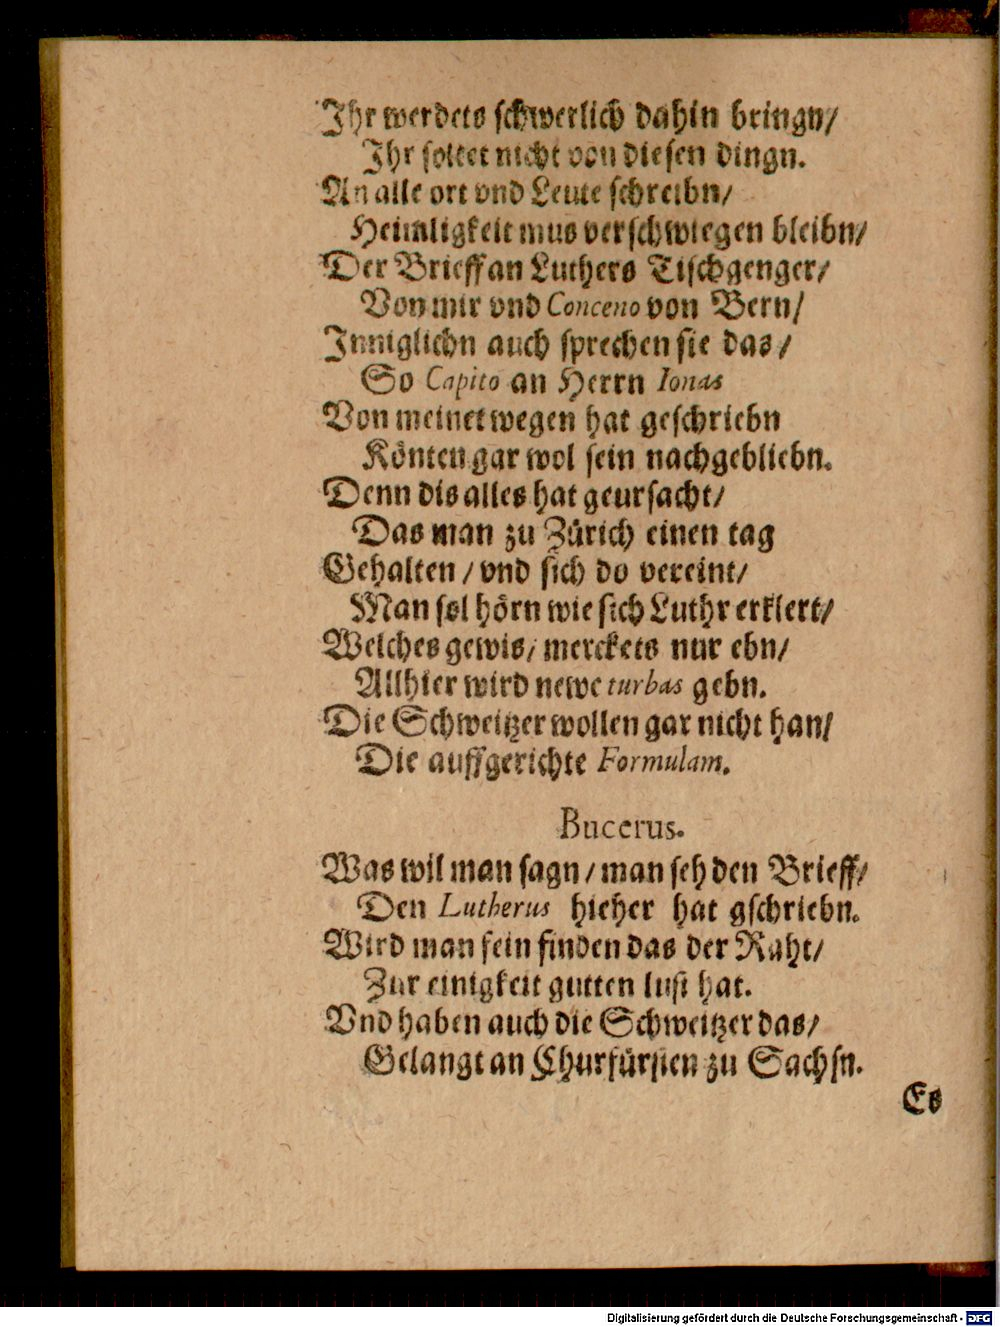 Ihr werdets schwerlich dahin bringn/
Ihr soltet nicht von diesen dingn.
An alle ort vnd Leute schreibn/
Heimligkeit mus verschwiegen bleibn/
Der Brieff an Luthers Tischgenger/
Von mir vnd Conceno von Bern/
Inniglichn auch sprechen sie das/
So Capito an Herrn Ionas
Von meinet wegen hat geschriebn
Könten gar wol sein nachgebliebn.
Denn dis alles hat geursacht/
Das man zu Zürich einen tag
Gehalten/ vnd sich do vereint/
Man sol hörn wie sich Luthr erklert/
Welches gewis/ merckets nur ebn/
Allhier wird newe turbas gebn.
Die Schweitzer wollen gar nicht han/
Die auffgerichte Formulam.
Bucerus.
Was wil man sagn/ man seh den Brieff/
Den Lutherus hieher hat gschriebn.
Wird man fein finden das der Raht/
Zur einigkeit gutten lust hat.
Vnd haben auch die Schweitzer das/
Gelangt an Churfürsten zu Sachsn.
Es
Digitalisierung gefördert durch die Deutsche Forschungsgemeinschaft - DFG